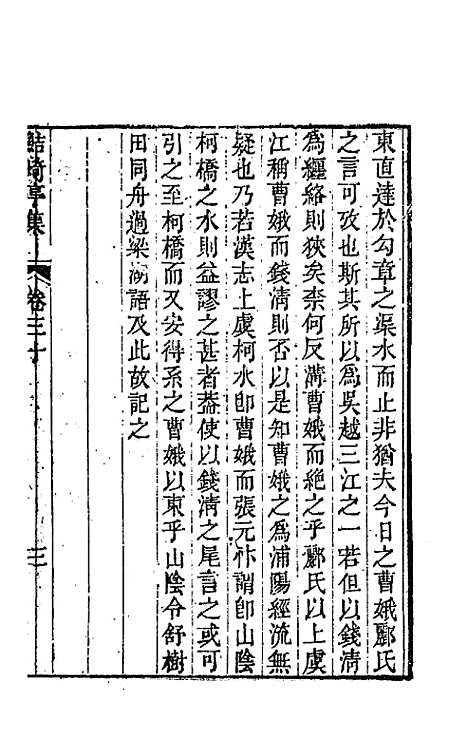 東直達於勾章之渠水而止非猶夫今日之曹娥酈氏
之言可攷也斯其所以爲吳越三江之一若但以錢清
爲纒絡則狹矣柰何反溝曹娥而絕之乎酈氏以上虞
江稱曹娥而錢清則否以是知曹娥之爲浦陽經流無
疑也乃若漢志上虞柯水卽曹娥而張元忭謂卽山陰
柯橋之水則益謬之甚者葢使以錢清之尾言之或可
引之至柯橋而又安得系之曹娥以東乎山陰令舒樹
田同舟過梁湖語及此故記之
鮚埼亭集
卷三十
三